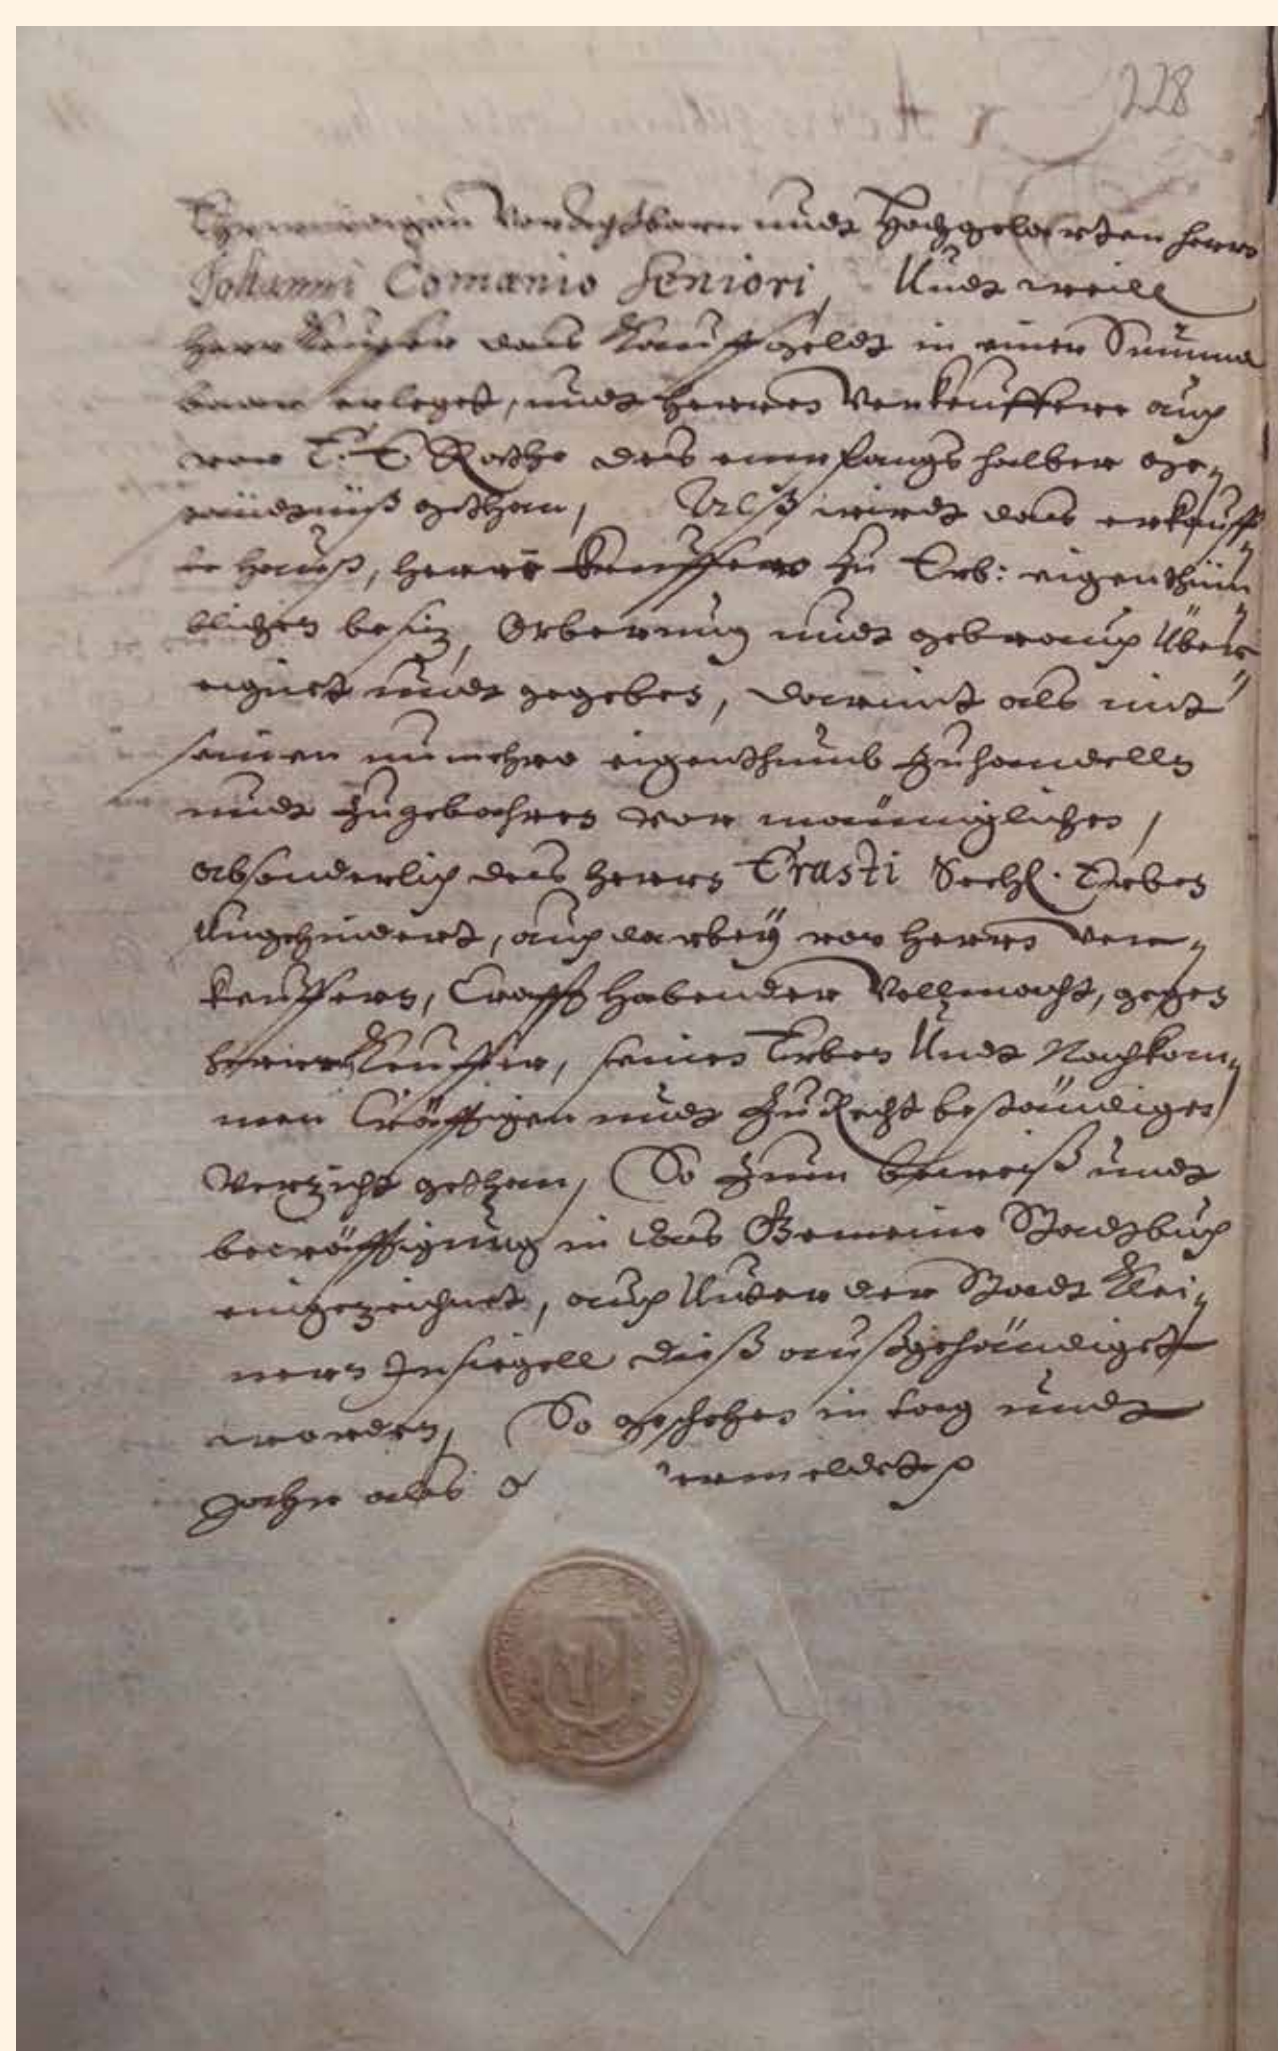 228
Ehrwürdigen Vorachtbarn undt Hochgelarten Herrn
Johanni Comænio Seniori, Undt weill
Herr Keuffer das Kauffgeldt in einer Summa
baar erleget, undt Herren Verkeuffere auch
vor E. E. Rathe des empfangs halber ge-
ständtnüß gethan, Alß wirdt das erkauff-
te Hauß, Herrn Keuffern zu Erb: eigenthüm-
blichen besitz, Erberung undt gebrauch Über-
eignet undt gegeben, darmit als mit
seinen nunmehro eigenthumb zuhandelln
undt zugebahren vor männiglichen,
absonderlich des Herrn Erasti Seehl. Erben
Ungehindert, auch darbey von Herrn Ver-
keuffern, Crafft habender Vollmacht, gegen
Herrn Keuffer, seinen Erben Undt Nachkom-
men Cräfftigen undt zu Recht beständigen
Verzicht gethan, So zum beweiß undt
becräfftigung in das Gemeine Stadtbuch
eingezeichnet, auch Unter der Stadt Klei-
nern Insiegell dieß außgehändiget
worden, So geschehen in tag undt
Jahr als vermeldet